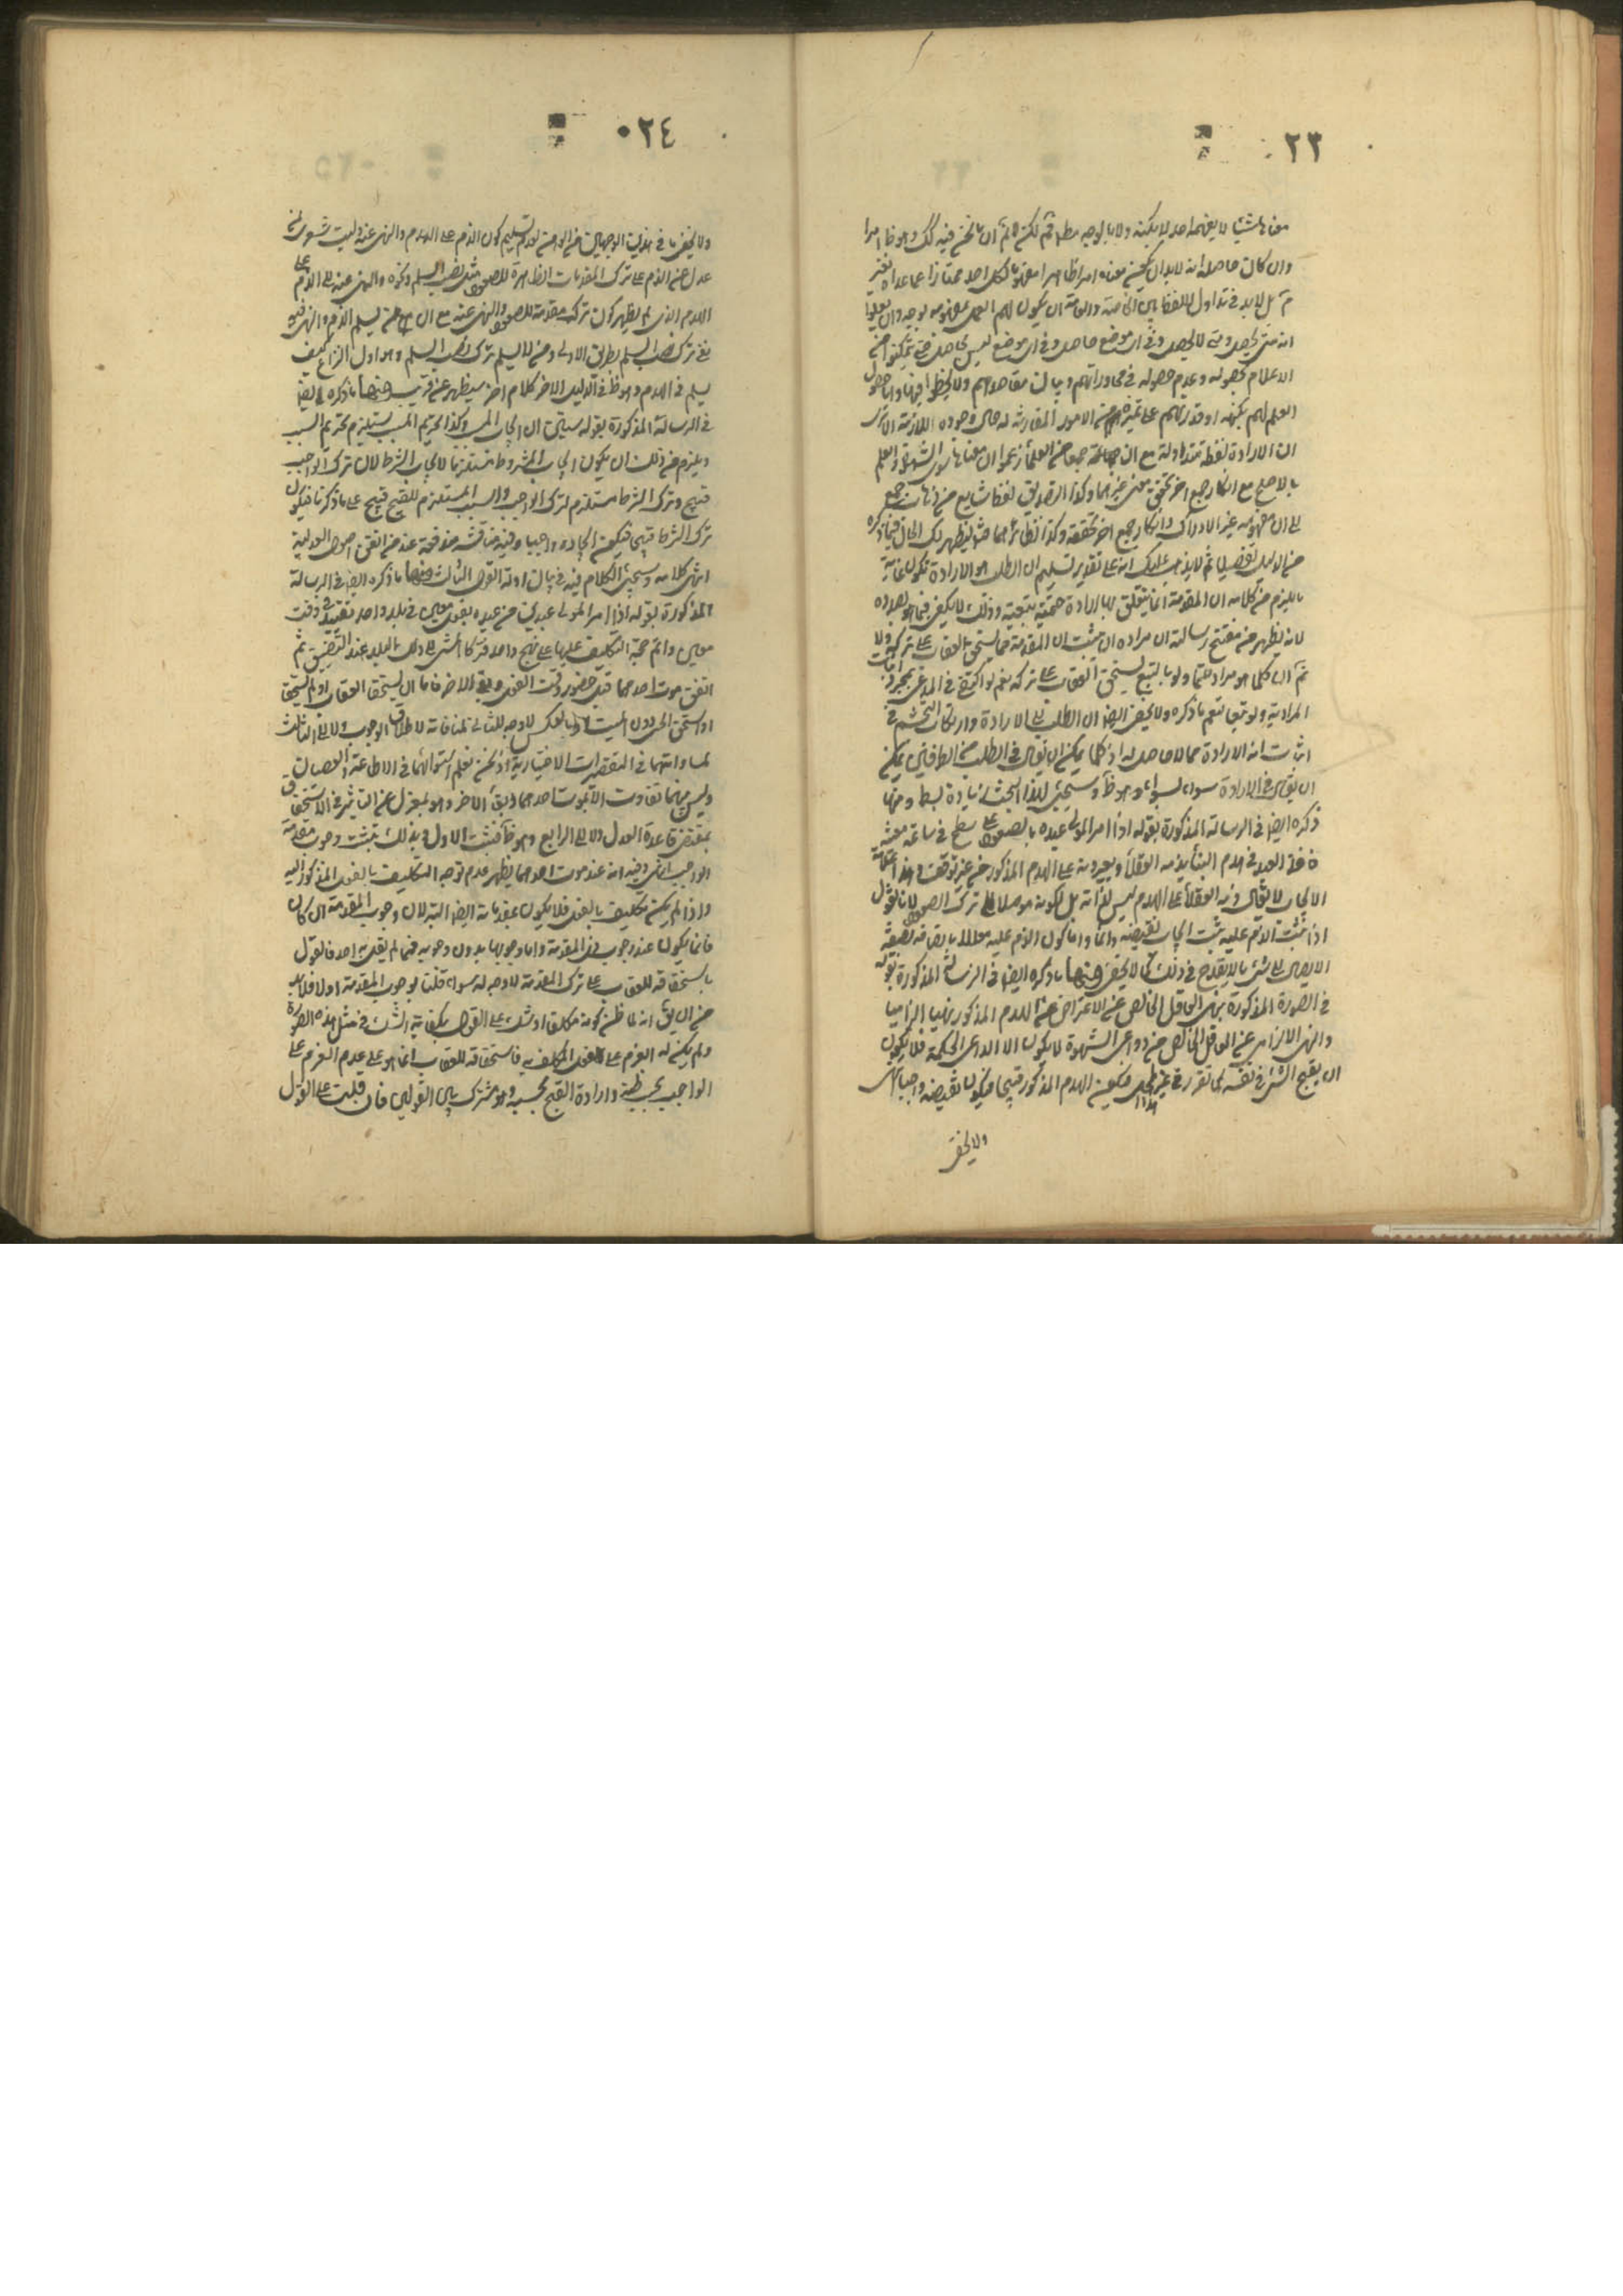 ٢٣
معناها شيئا لا يفهمه احد لا بكنهه ولا بالوجه مطلقا ثم لكن لا ثم ان ما نحن فيه كك وهو ظ امرا
وان كان حاصله انه لابد ان يكون معناه امرا ظاهرا معلوما لكل احد ممتازا عما عداه فغير
ثم بل لابد في تداول اللفظ بين الخاصة والعامة ان يكون لهم العلم بمفهومه بوجه وان يعلموا
انه متى يحصل ومتى لا يحصل وفي اى موضع حاصل وفي اى موضع ليس بحاصل حتى تمكنوا من
الاعلام بحصوله وعدم حصوله في محاوراتهم وبيان مقاصدهم ولا يخطوا فيها واما حصول
العلم لهم بكنهه او قدرتهم على تميزه من الامور المقارنة له حال وجوده اللازمة الا ترى
ان الارادة لفظة متداولة مع ان جماعة من العلماء زعموا ان معناها سوى الشهوة والعلم
بالاصلح مع انكار جمع اخر تحقق معنى غيرهما وكذا التصديق لفظ شايع مع ذهاب جمع
الى ان مفهومه غير الادراك وانكار جمع اخر تحققه وكذا نظائرهما حتى يظهر لك الحال فيما ذكره
من الدليل تفصيلا ثم لا يذهب عليك انه على تقدير تسليم ان الطلب هو الارادة يكون غاية
ما يلزم من كلامه ان المقدمة انما يتعلق بها ارادة حتمية تبعية وذلك لا يكفي فيما هو بصدده
لانه يظهر من مفتتح رسالته ان مراده ان يثبت ان المقدمة مما يستحق العقاب على تركه ولا
ثم ان كلما هو مراد حتما ولو بالتبع يستحق العقاب على تركه نعم لو اكتفى في المدعى بمجرد اثبات
المرادية ولو تبعا لتم ما ذكره ولا يخفى ايضا ان الطلب الى الارادة وارتكاب التجشم في
اثبات انه الارادة مما لا حاصل له اذ كلما يمكن ان يقال في الطلب من الطرفين يمكن
ان يقال في الارادة سواء بسواء وهو ظ وسيجيئ لهذا البحث زيادة بسط ومنها ما
ذكره ايضا في الرسالة المذكورة بقوله اذا امر المولى عبده بالصعود على سطح في ساعة معينة
فاخذ العبد في هدم البناء يذمه العقلاء ويعيرونه على الهدم المذكور من غير توقف وهذا علامة
الايجاب لا يقال ذم العقلاء على الهدم ليس لذاته بل لكونه موصلا الى ترك الصعود لانا نقول
اذا ثبت الذم عليه ثبت ايجاب نقيضه واما كون الذم عليه معللا باتصافه بصفة
الايصال الى شئ ما لا يقدح في ذلك كما لا يخفى ومنها ما ذكره ايضا في الرسالة المذكورة بقوله
في الصورة المذكورة ينهى العاقل الخالص عن الاغراض عن الهدم المذكور نهيا الزاميا
والنهى الالزامى عن العاقل الخالص من دواعى الشهوة لا يكون الا لداعى الحكمة فلا يكون
الا بقبح الشئ في نفسه كما تقرر في محله فيكون الهدم المذكور قبيحا فيكون نقيضه واجبا انتهى
ولا يخفى
٠٢٤
ولا يخفى ما في هذين الوجهين من الوهن لعدم تسليم كون الذم على الهدم والنهى عنه وليت شعرى لم
عدل من الذم على ترك المقدمات الظاهرة للصعود مثل نصب السلم ونحوه والنهى عنه الى الذم على
الهدم الذى لم يظهر كون تركه مقدمة للصعود والنهى عنه مع ان من يسلم الذم والنهى فيه
ففي ترك نصب السلم بطريق الاولى ومن لا يسلم ترك نصب السلم وهو اول النزاع كيف
يسلم في الهدم وهو ظ في الدليل الاخر كلام اخر سيظهر عن قريب ومنها ما ذكره ايضا
في الرسالة المذكورة بقوله سيأتى ان ايجاب المسبب وكذا تحريم المسبب يستلزم تحريم السبب
ويلزم من ذلك ان يكون ايجاب المشروط مستلزما لايجاب الشرط لان ترك الواجب
قبيح وترك الشرط مستلزم لترك الواجب والسبب المستلزم للقبيح قبيح على ما ذكرنا فيكون
ترك الشرط قبيحا فيكون ايجاده واجبا وفيه مناقشة مندفعة عند من اتقن اصول العدلية
انتهى كلامه وسيجئ الكلام فيه في بيان ادلة القول الثالث ومنها ما ذكره ايضا في الرسالة
المذكورة بقوله اذا امر المولى عبدين من عبيده بفعل معين في بلد واحد بعيد في وقت
معين واتم حجة التكليف عليهما على نهج واحد فتركا المشى الى ذلك البلد عند التضيق ثم
اتفق موت احدهما قبل حضور وقت الفعل وبقى الاخر فاما ان يستحقا العقاب او لم يستحقا
او استحق الحى دون الميت او بالعكس لا وجه للثانى لمنافاته لاطلاق الوجوب ولا الى الثالث
لمساواتهما في التقصيرات الاختيارية اذ نحن نعلم استوائهما في الاطاعة والعصيان
وليس بينهما تفاوت الا بموت احدهما وبقاء الاخر وهو بمعزل عن التأثير في الاستحقاق
بمقتضى قاعدة العدل ولا الى الرابع وهو ظ فثبت الاول وبذلك يثبت وجوب مقدمة
الواجب انتهى وفيه انه عند موت احدهما يظهر عدم توجه التكليف بالفعل المذكور اليه
واذا لم يكن تكليف بالفعل فلا يكون بمقدماته ايضا البتة لان وجوب المقدمة ان كان
فانما يكون عند وجوب ذى المقدمة واما وجوبها بدون وجوبه فمما لم يقل به احد فالقول
باستحقاقه للعقاب على ترك المقدمة لا وجه له سواء قلنا بوجوب المقدمة او لا فلابد
من ان يق انه لما ظن كونه مكلفا او شك على القول بكفاية الشك في مثل هذه الصورة
ولم يكن له العزم على الفعل المكلف به فاستحقاقه للعقاب انما هو على عدم العزم على
الواجب بحسب ظنه وارادة القبيح بحسبه وهو مشترك بين القولين فان قلت على القول